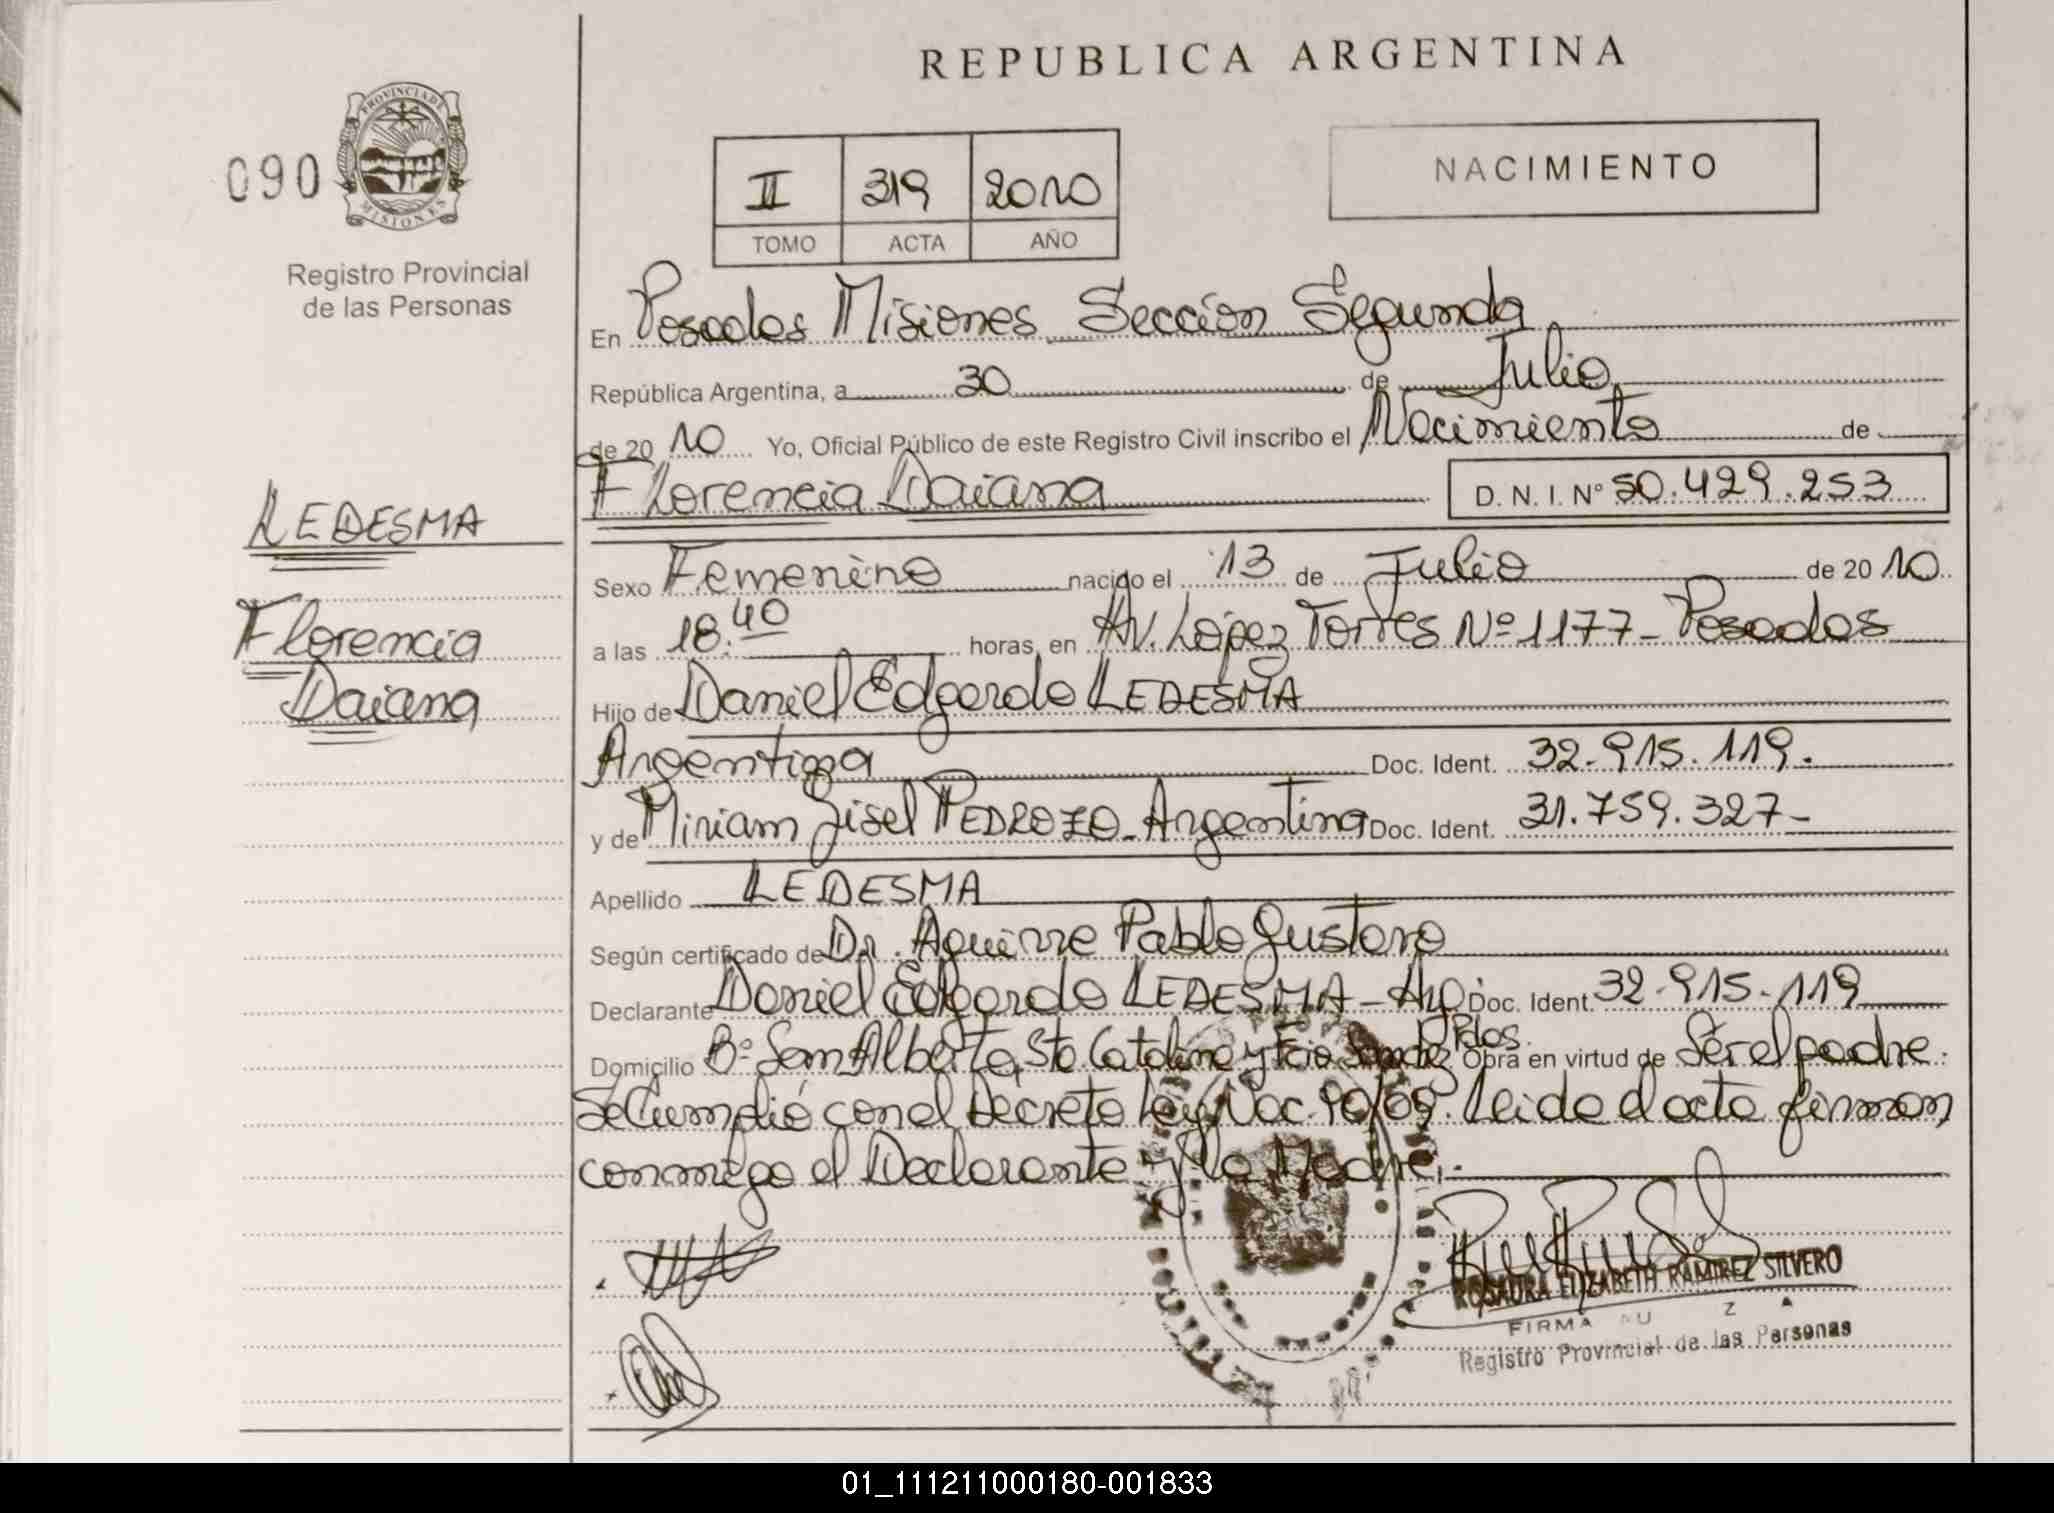 REPUBLICA ARGENTINA
090
PROVINCIA DE
MISIONES
Registro Provincial
de las Personas
II 319 2010
TOMO ACTA AÑO
NACIMIENTO
En Posadas Misiones Sección Segunda
República Argentina, a 30 de Julio
de 2010 Yo, Oficial Público de este Registro Civil inscribo el Nacimiento de
Florencia Daiana D. N. I. Nº 50.429.253
LEDESMA
Florencia
Daiana
Sexo Femenino nacido el 13 de Julio de 2010
a las 18:40 horas, en AV. López Torres Nº 1177 - Posadas
Hijo de Daniel Edgardo LEDESMA
Argentina Doc. Ident. 32.915.119.
y de Miriam Gisel PEDROZO - Argentina Doc. Ident. 31.759.327-
Apellido LEDESMA
Según certificado de Dr. Aguirre Pablo Gustavo
Declarante Daniel Edgardo LEDESMA - Doc. Ident. 32.915.119
Domicilio Bº San Alberto, Sta Catalina y Pdas. Obra en virtud de Ser el padre.
Se Cumplió con el Decreto Ley Nac. 90/09. Leida el acta firman
conmigo el Declarante y la Madre.-
ROSAURA ELIZABETH RAMIREZ SILVERO
FIRMA
Registro Provincial de las Personas
01_111211000180-001833